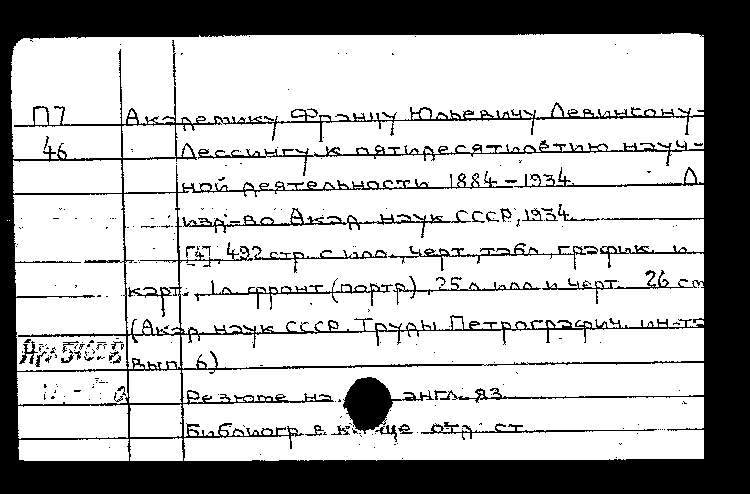 П7 Академику Францу Юльевичу Левинсону-
46 Лессингу к пятидесятилетию науч-
ной деятельности 1884-1934 Л.
изд-во Акад. наук СССР, 1934
[4], 492 стр. с илл., черт., табл., график. и
карт., 1 л. фронт. (портр.), 25 л. илл. и черт. 26 см
(Акад. наук СССР. Труды Петрографич. ин-та
вып. 6)
Резюме на англ. яз.
Библиогр. в конце отд. ст.